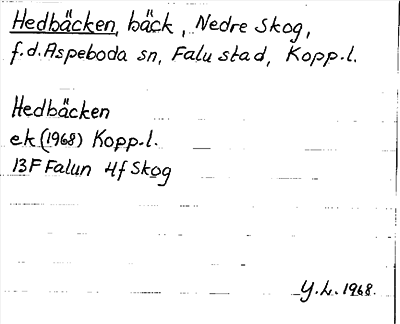 Hedbäcken, bäck, Nedre Skog,
f.d. Aspeboda sn, Falu stad, Kopp.l.
Hedbäcken
ek (1968) Kopp.l.
13F Falun 4f Skog
Y.L. 1968.